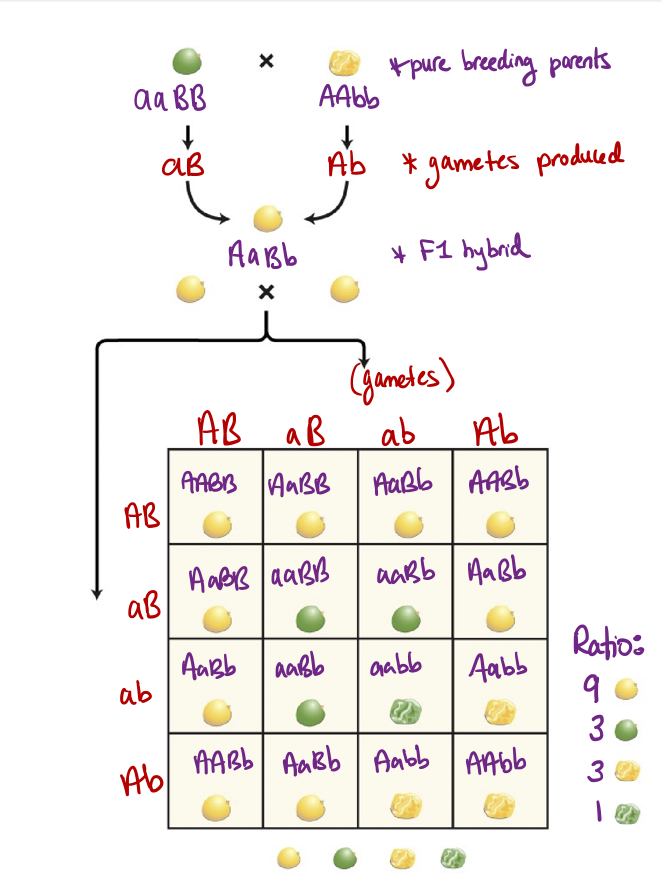 × *pure breeding parents
aaBB AAbb
aB Ab * gametes produced
AaBb * F1 hybrid
×
(gametes)
AB aB ab Ab
AB AABB AaBB AaBb AABb
aB AaBB aaBB aaBb AaBb
ab AaBb aaBb aabb Aabb
Ab AABb AaBb Aabb AAbb
Ratio:
9
3
3
1